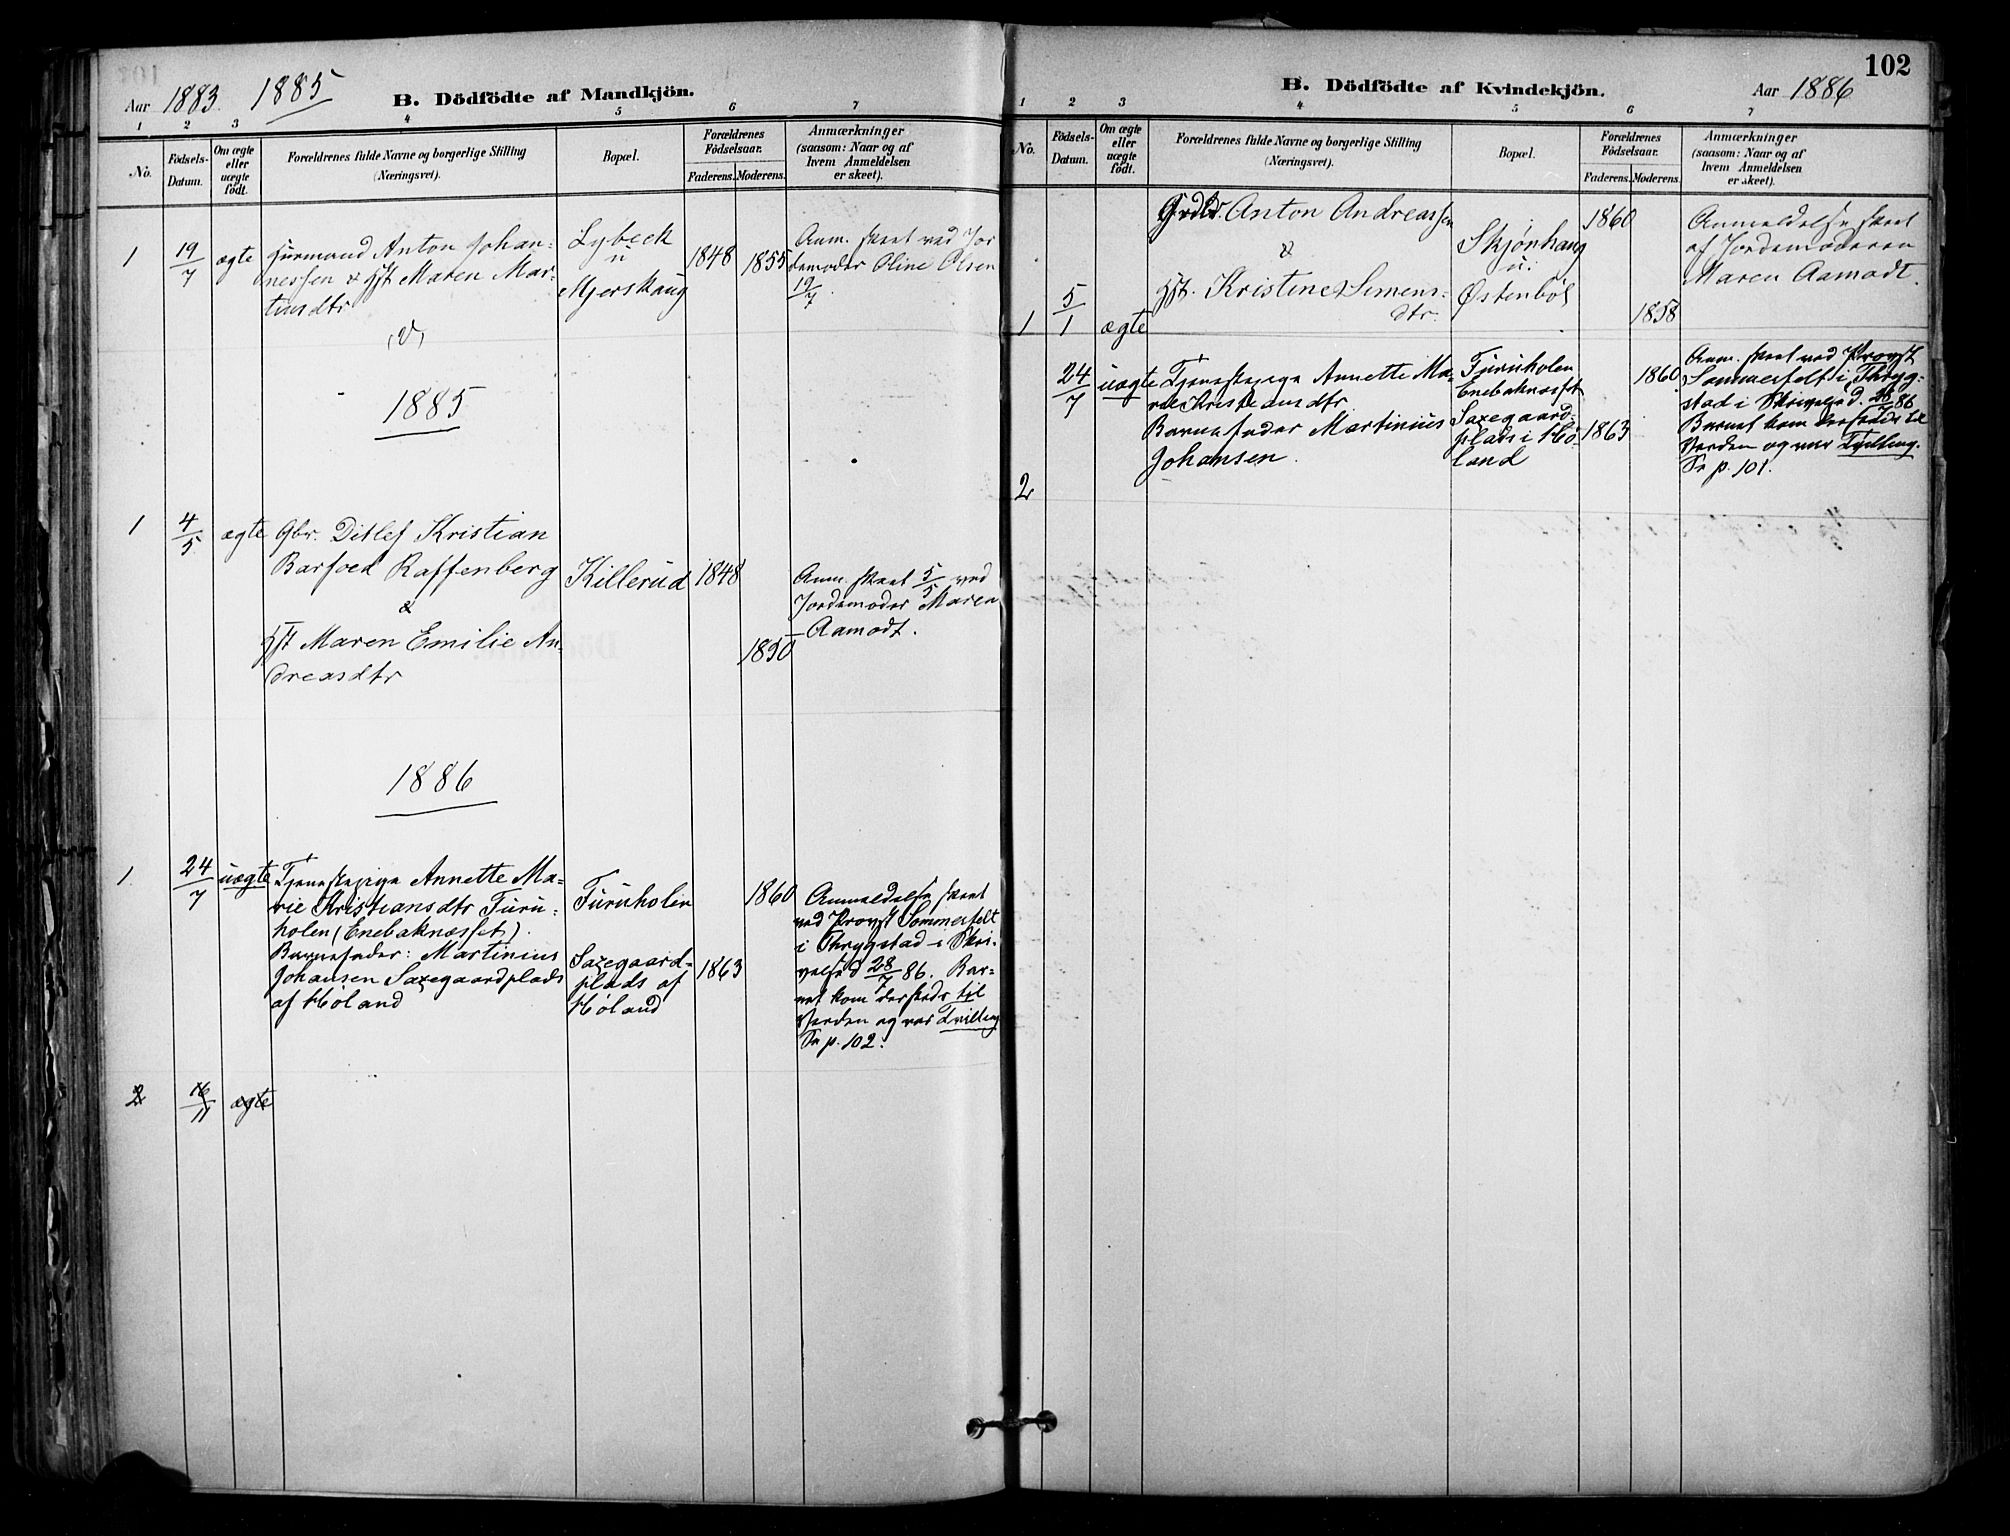 Aar 1883. 1885
B. Dödfödte af Mandkjön.
1 2 3 4 5 6 7
No.
Fødsels-Datum.
Om ægte eller uægte født.
Forældrenes fulde Navne og borgerlige Stilling
(Næringsvei).
Bopæl.
Forældrenes Fødselsaar.
Faderens. Moderens.
Anmærkninger
(saasom: Naar og af
hvem Anmeldelsen
er skeet).
1 19/7 ægte
Anton Johan-
nessen & Hst Maren Mar-
tinsdtr
(d)
Lybeck
u
Mjerskaug
1848 1855
Anm. skeet ved Jor
demoder Oline Olsen
19/7
1885
1 4/5 ægte
Gbr. Ditlef Kristian
Barfoed Raffenberg
&
Hst Maren Emilie An-
dreasdtr
Killerud
1848
1850
Anm. skeet 5/5 ved
Jordemoder Maren
Aamodt.
1886
1 24/7 uægte
Tjenestepige Annette Ma-
rie Kristiansdtr Furu-
holen (Enebaknæsset).
Barnefader: Martinius
Johansen Saxegaardplads
af Høland
Furuholen
Saxegaard-
plads af
Høland
1860
1863
Anmeldelse skeet
ved Provst Sommerfelt
i Thrygstad i Skri-
velse d 28/7 86. Bar-
net kom dersteds til
Verden og var Tvilling
Se p. 102.
2 16/11 ægte
102
B. Dödfödte af Kvindekjön.
Aar 1886
1 2 3 4 5 6 7
No.
Fødsels-Datum.
Om ægte eller uægte født.
Forældrenes fulde Navne og borgerlige Stilling
(Næringsvei).
Bopæl.
Forældrenes Fødselsaar.
Faderens. Moderens.
Anmærkninger
(saasom: Naar og af
hvem Anmeldelsen
er skeet).
Anton Andreassen
&
Hst. Kristine Simens-
dtr.
1 5/1 ægte
Skjønhaug
u.
Østenbøl
1860
1858
Anmeldelse skeet
af Jordemoderen
Maren Aamodt.
2 24/7 uægte
Tjenestepige Annette Ma-
rie Kristiansdtr
Barnefader Martinius
Johansen.
Furuholen
Enebaknæsset
Saxegaard-
plads i Hø-
land
1860
1863
Anm. skeet ved Provst
Sommerfelt i Thryg-
stad i Skrivelse d. 28/7 86
Barnet kom dersteds til
Verden og var Tvilling.
Se p. 101.